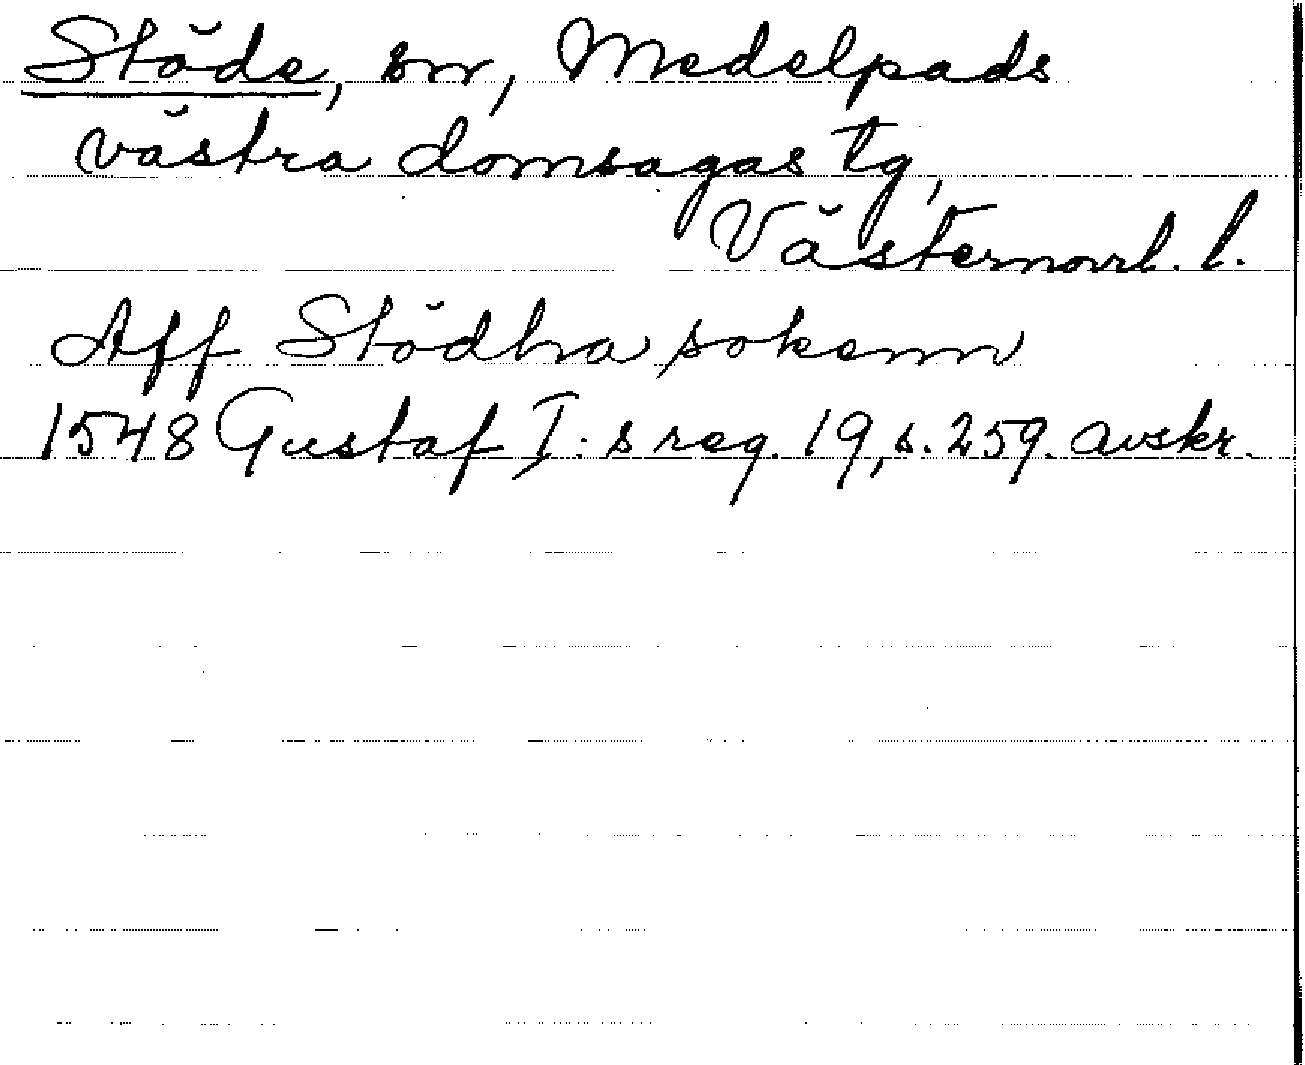 Stöde, sn, Medelpads
västra domsagas tg,
Västernorrl. l.
Aff Stödha sokenn
1548 Gustaf I:s reg. 19, s. 259. avskr.